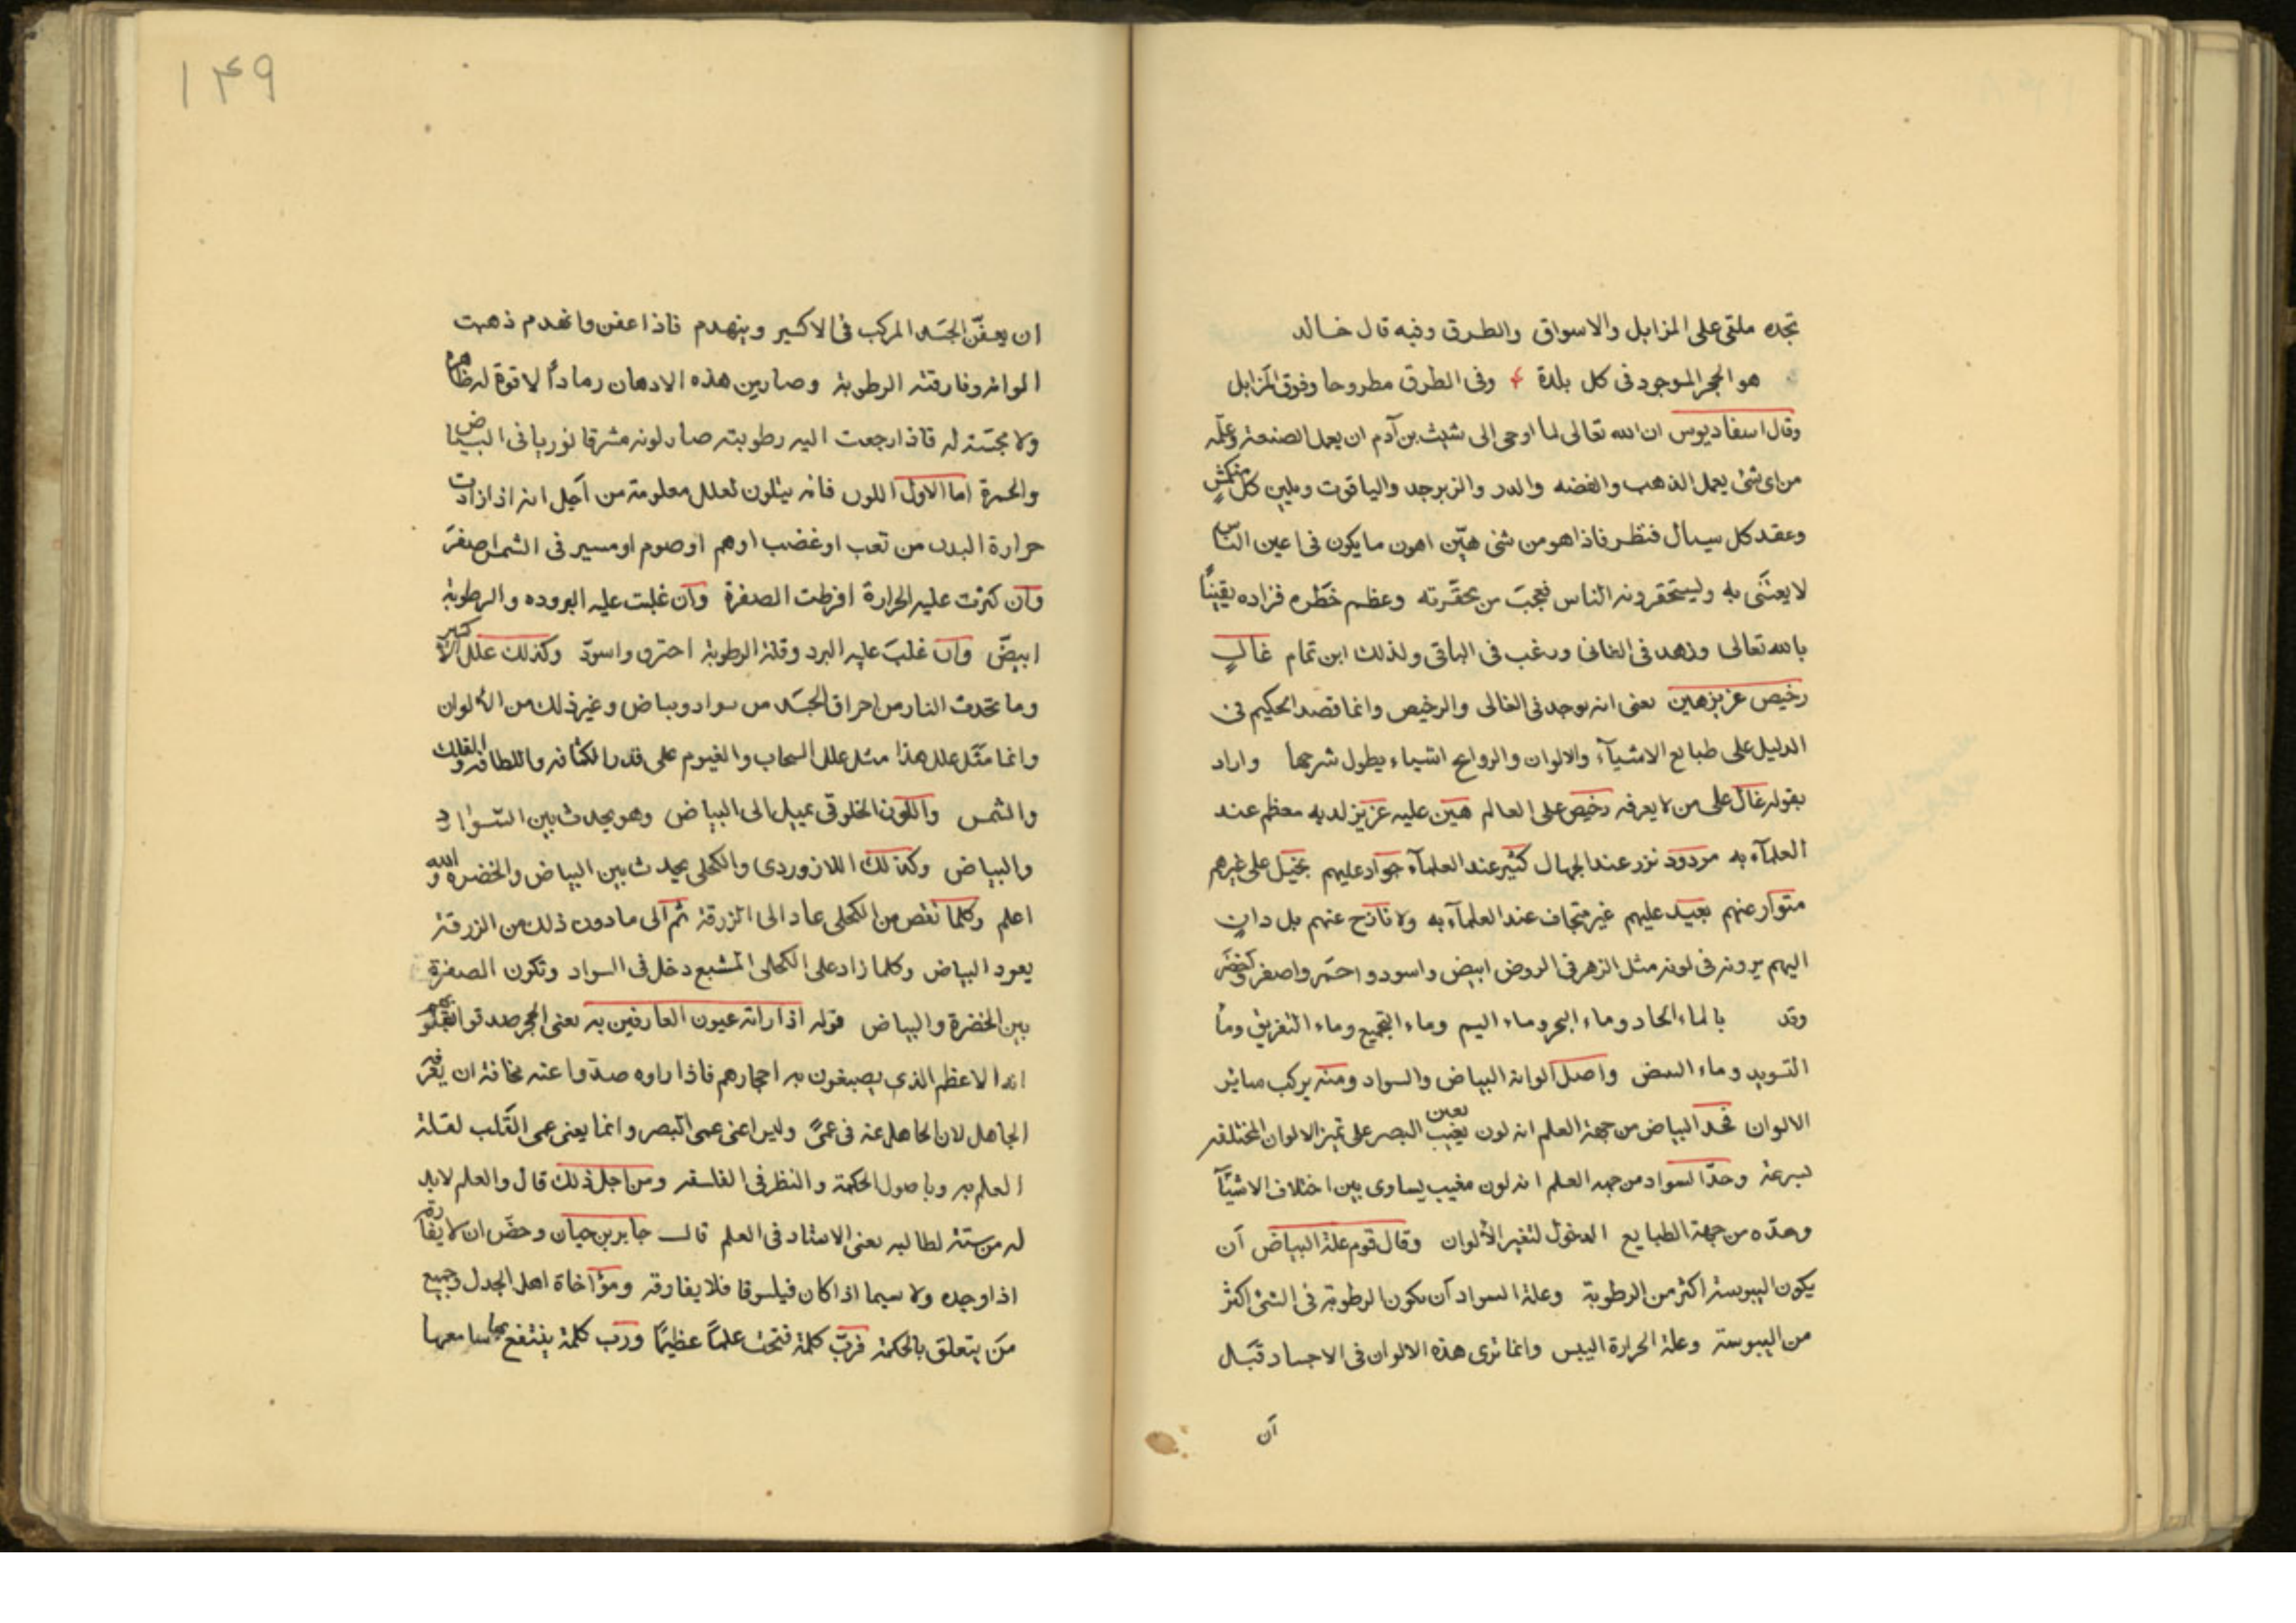 تجده ملقى على المزابل والاسواق والطرق وفيه قال خالد
هو الحجر الموجود فى كل بلدة وفى الطرق مطروحا وفوق المزابل
وقال اسفاديوس ان الله تعالى لما اوحى الى شيث بن آدم ان يعمل الصنعة وعلّمه
من اى شئ يعمل الذهب والفضه والدر والزبرجد والياقوت ويلين كل
وعقد كل سيال فنظر فاذا هو من شئ هيّن اهون ما يكون فى اعين الناس
لا يعتنى به وليستحقرونه الناس فعجب من محقرته وعظم خطره فزاده يقيناً
بالله تعالى وزهد فى الفانى ورغب فى الباقى ولذلك ابن تمام غالٍ
رخيص عزيز هين يعنى انه يوجد فى الغالى والرخيص وانما قصد الحكيم فى
الدليل على طبايع الاشيآء والالوان والروايح اشياء يطول شرحها واراد
بقوله غال على من لا يعرفه رخيص على العالم هين عليه عزيز لديه معظم عند
العلمآء به مردود نزر عند الجهال كثير عند العلمآء جواد عليهم بخيل على غيرهم
متوار عنهم بعيد عليهم غير متجاف عند العلمآء به ولا نازح عنهم بل دانٍ
اليهم يرونه فى لونه مثل الزهر فى الروض ابيض واسود واحمر واصفر
وقد بالماء الحاد وماء البحر وماء اليم وماء التجميع وماء التفريق وماء
التسويد وماء البيض واصل الوانه البياض والسواد ومنه يركب ساير
الالوان فحد البياض من جهة العلم انه لون يغيب يعين البصر على تميز الالوان المختلفه
بسرعة وحدّ السواد من جهه العلم انه لون مغيب يساوى بين اختلاف الاشيآ
وحدّه من جهة الطبايع المحول لتغير الألوان وقال قوم علة البياض أن
يكون اليبوسة اكثر من الرطوبة وعلة السواد أن يكون الرطوبة فى الشئ اكثر
من اليبوسة وعلة الحرارة اليبس وانما ترى هذه الالوان فى الاجساد قبل
أن
١٤٩
ان يعفّن الجسد المركب فى الاكسير وينهدم فاذا عفن وانهدم ذهبت
الوانه وفارقته الرطوبة وصار بين هذه الادهان رماداً لا قوة له ظاهرة
ولا مجسّة له فاذا رجعت اليه رطوبته صار لونه مشرقا نوريا فى البياض
والحمرة اما الاول اللون فانه يتلون لعلل معلومة من آجل انه اذا زادت
حرارة البدن من تعب او غضب او هم او صوم او مسير فى الشمس اصفرّ
وآن كثرت عليه الحرارة افرطت الصفرة وآن غلبت عليه البروده والرطوبة
ابيضّ وآن غلب عليه البرد وقلة الرطوبة احترق واسودّ وكذلك علل الاكسير
وما تحدث النار من احراق الجسد من سواد وبياض وغير ذلك من الالوان
وانما مثل علل هذا مثل علل السحاب والغيوم على قدر الكثافه واللطافه والفلك
والشمس واللون الخلوقى يميل الى البياض وهو يحدث بين السّواد
والبياض وكذلك اللازوردى والكحلى يحدث بين البياض والخضره والله
اعلم وكلما نقص من الكحلى عاد الى الزرقة ثم الى ما دون ذلك من الزرقة
يعود البياض وكلما زاد على الكحلى المشبع دخل فى السواد وتكون الصفرة
بين الخضرة والبياض قوله اذا راته عيون العارفين به يعنى الحجر صدقوا
انه الاعظم الذى يصبغون به احجارهم فاذا راوه صدّوا عنه مخافة ان يعرفه
الجاهل لان الجاهل عنه فى عمىً وليس اعنى عمى البصر وانما يعنى عمى القلب لقلة
العلم به وباصول الحكمة والنظر فى الفلسفه ومن اجل ذلك قال والعلم لابد
له من ستة لطالبه يعنى الاستاد فى العلم قال جابر بن حيان وحضّ ان لا يفارقه
اذا وجده ولا سيما اذا كان فيلسوفا فلا يفارقه ومؤاخاة اهل الجدل وجميع
من يتعلق بالحكمة فربّ كلمة فتحت علماً عظيماً ورب كلمة ينتفع بها سامعها